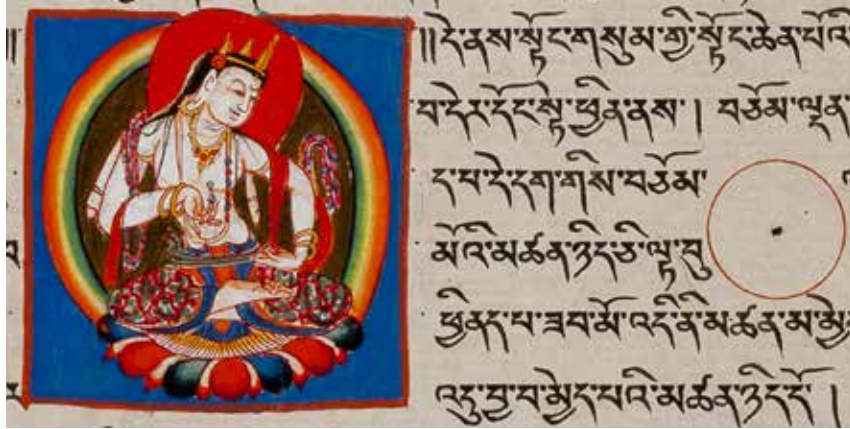 །།དེ་ནས་སྟོང་གསུམ་གྱི་སྟོང་ཆེན་པོའི
བ་དེར་དོང་སྟེ་ཕྱིན་ནས། བཅོམ་ལྡན
ད་པ་དེ་དག་གིས་བཅོམ་
མོའི་མཚན་ཉིད་ཅི་ལྟ་བུ
ཕྱིནད་པ་ཟབ་མོ་འདི་ནི་མཚན་མ་མྱེ
འདུ་བྱ་བ་མྱེད་པའི་མཚན་ཉིད་དོ །